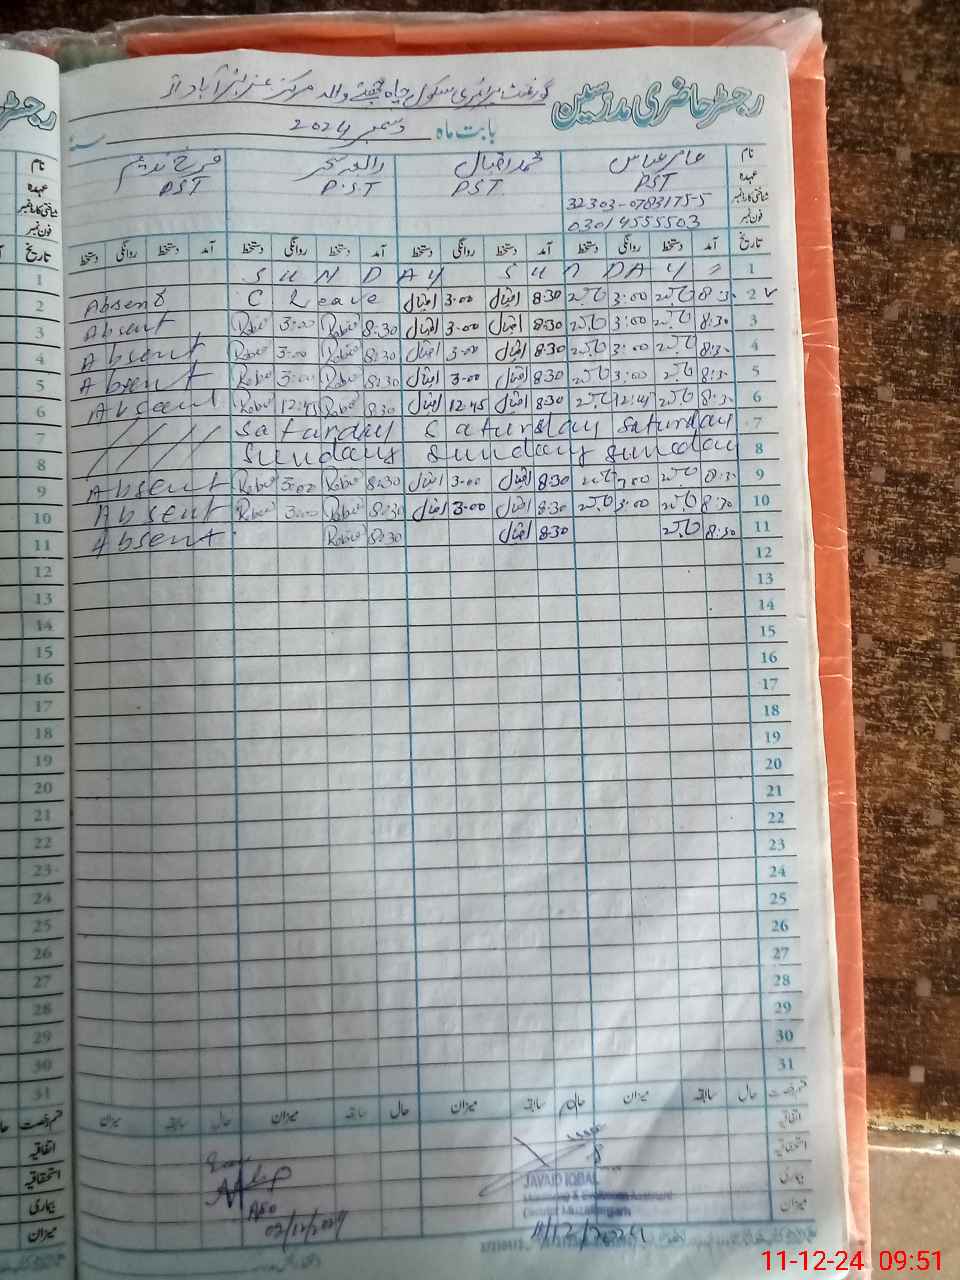 رجسٹر حاضری مدرسین
گورنمنٹ پرائمری سکول چاہ والہ مرکز
بابت ماہ دسمبر 2024
نام عامر عباس محمد اقبال رابعہ فرخ ندیم
عہدہ PST PST P.ST PST
شناختی کارڈ نمبر 32303-0783175-5
فون نمبر 03014555503
تاریخ آمد دستخط روانگی دستخط آمد دستخط روانگی دستخط آمد دستخط روانگی دستخط آمد دستخط روانگی دستخط
1 SUNDAY SUNDAY
2 8:30 3:00 8:30 اقبال 3.00 اقبال C Leave Absent
3 8:30 3:00 8:30 اقبال 3.00 اقبال 8:30 Rabia 3:00 Rabia Absent
4 8:30 3:00 8:30 اقبال 3.00 اقبال 8:30 Rabia 3:00 Rabia Absent
5 8:30 3:00 8:30 اقبال 3.00 اقبال 8:30 Rabia 3:00 Rabia Absent
6 8:30 12:45 8:30 اقبال 12.45 اقبال 8:30 Rabia 12:45 Rabia Absent
7 Saturday Saturday Saturday
8 Sunday Sunday Sunday
9 8:30 3:00 8:30 اقبال 3.00 اقبال 8:30 Rabia 3:00 Rabia Absent
10 8:30 3:00 8:30 اقبال 3.00 اقبال 8:30 Rabia 3:00 Rabia Absent
11 8:30 8:30 اقبال 8:30 Rabia Absent
12
13
14
15
16
17
18
19
20
21
22
23
24
25
26
27
28
29
30
31
قسم رخصت حال سابقہ میزان حال سابقہ میزان حال سابقہ میزان حال سابقہ میزان
اتفاقیہ
استحقاقیہ
بیماری
میزان
JAVAID IQBAL
Monitoring & Evaluation Assistant
District Muzaffargarh
11/12/2024
AEO
02/12/2024
11-12-24 09:51